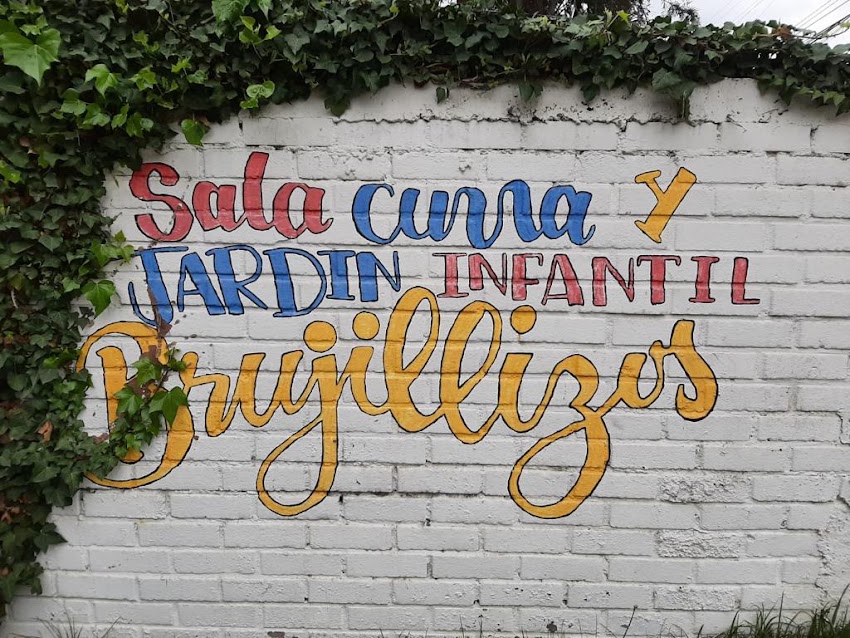 Sala cuna y
JARDIN INFANTIL
Brujillizos